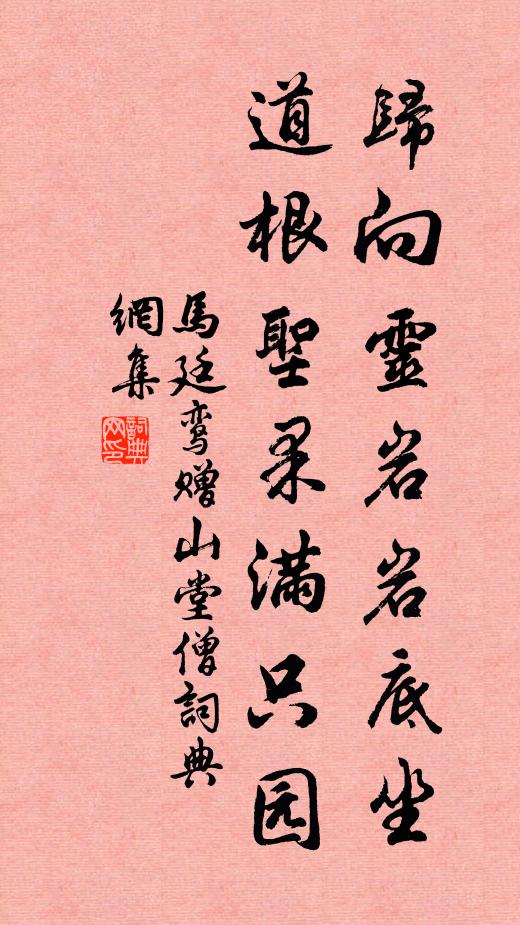 歸向靈岩岩底坐
道根聖果滿只园
馬廷鸾赠山堂僧詞典
網集
詞典网印